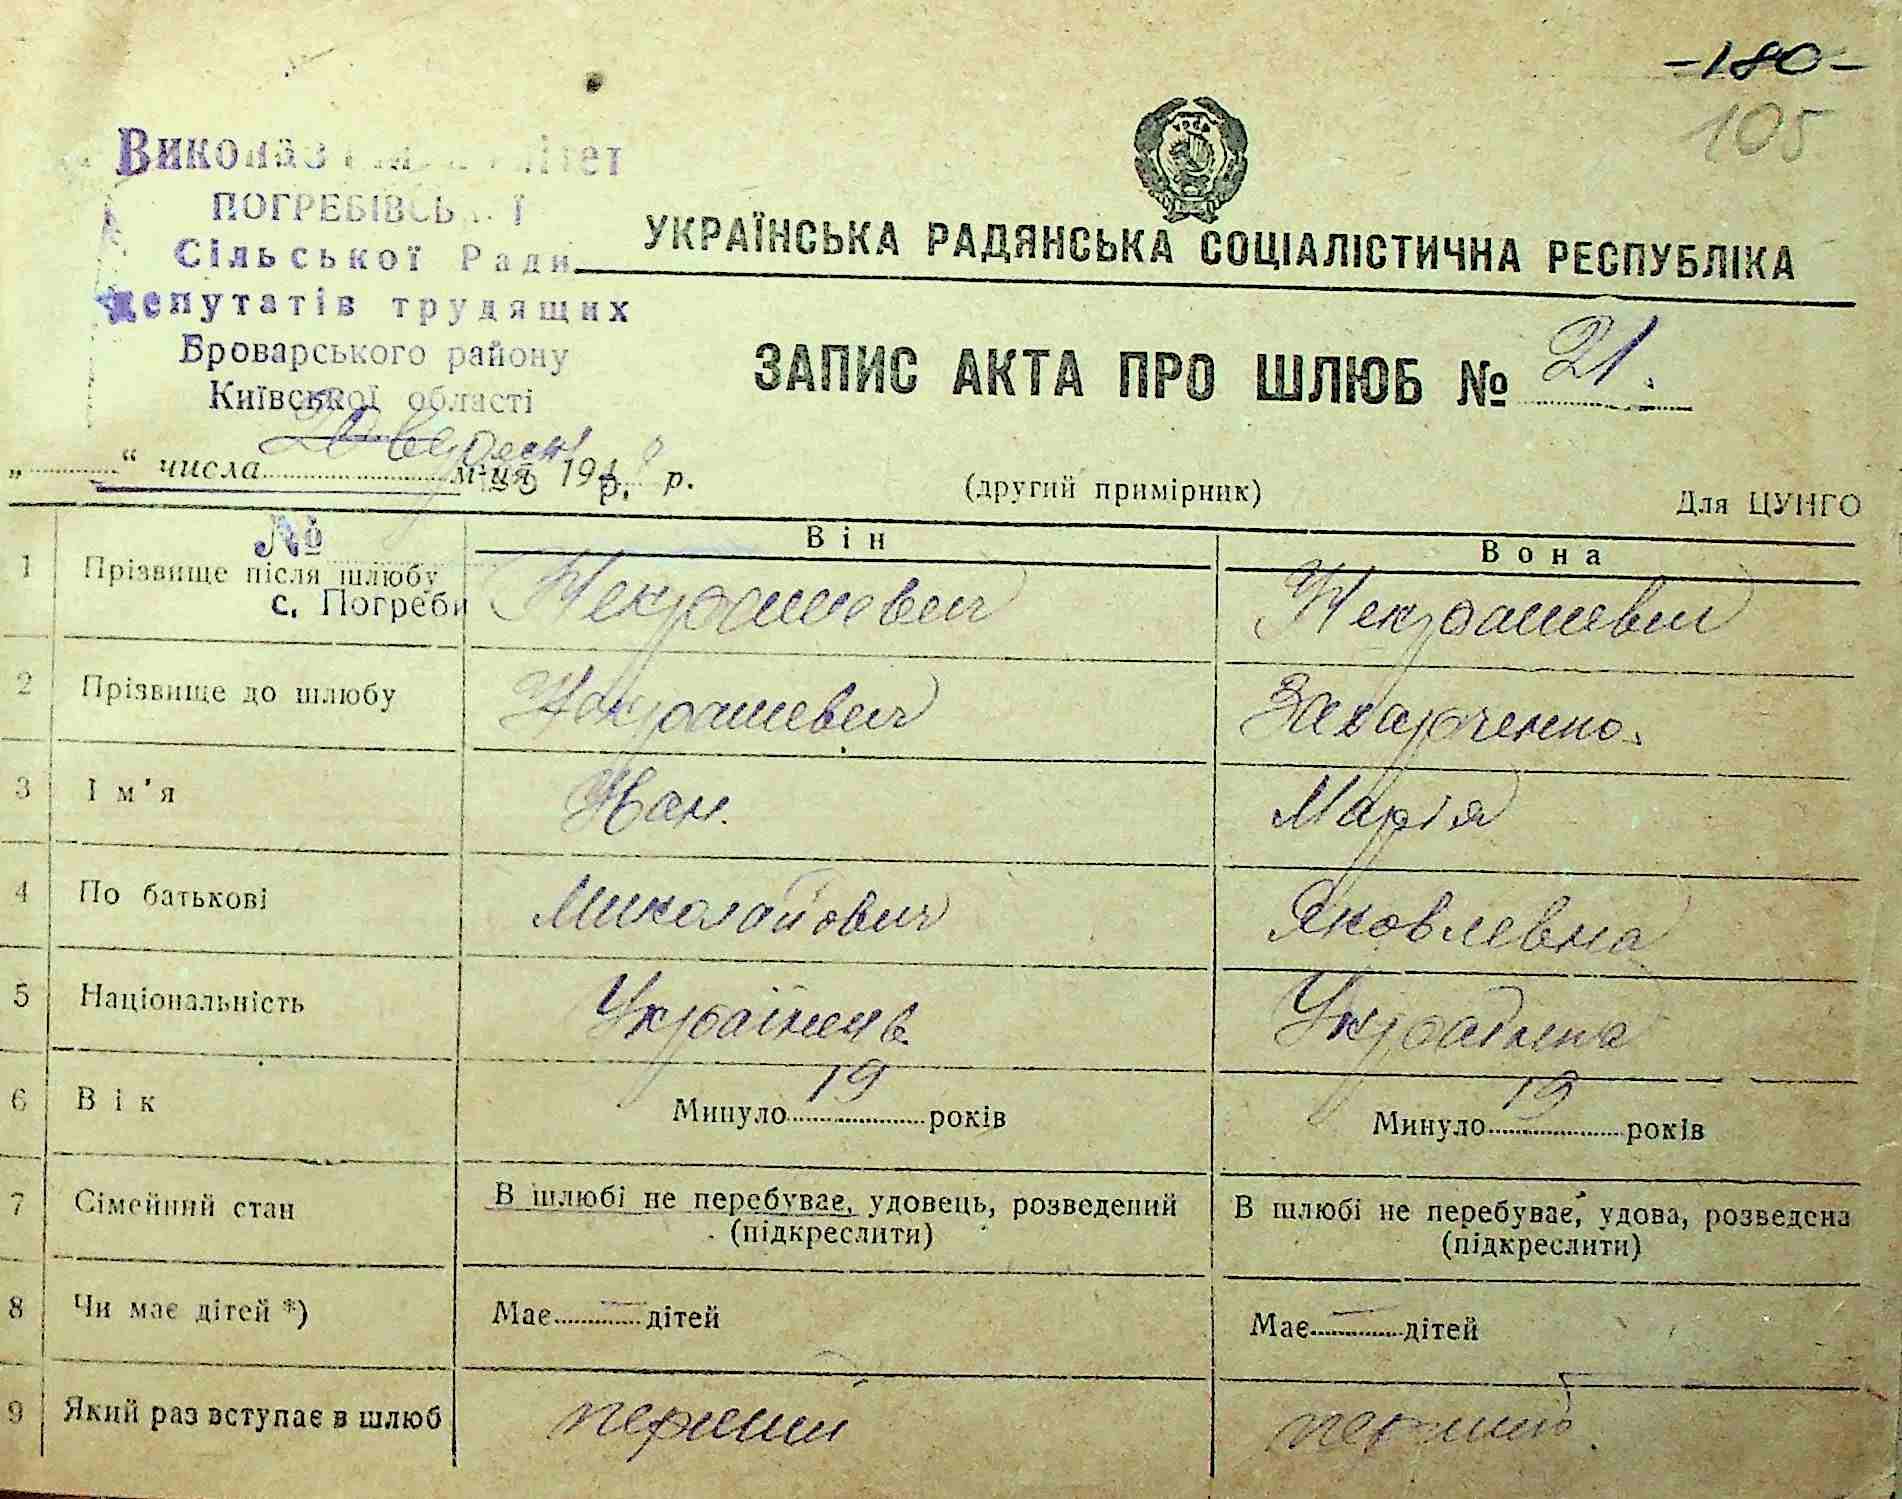 -180-
105
Виконав
ПОГРЕБІВСЬ ї
Сільської Ради
депутатів трудящих
Броварського району
Київської області
УКРАЇНСЬКА РАДЯНСЬКА СОЦІАЛІСТИЧНА РЕСПУБЛІКА
ЗАПИС АКТА ПРО ШЛЮБ № 21.
„ “ числа 20 вересня м-ця 194 р.
(другий примірник)
Для ЦУНГО
№
Він
Вона
1 Прізвище після шлюбу Некрашевич Некрашевич
с. Погреби
2 Прізвище до шлюбу Некрашевич Захарченко.
3 Ім'я Іван. Марія
4 По батькові Миколайович Яковлевна
5 Національність Українець Українка
6 Вік Минуло 19 років Минуло 19 років
7 Сімейний стан В шлюбі не перебуває, удовець, розведений В шлюбі не перебуває, удова, розведена
(підкреслити) (підкреслити)
8 Чи має дітей *) Має — дітей Має — дітей
9 Який раз вступає в шлюб перший перший.